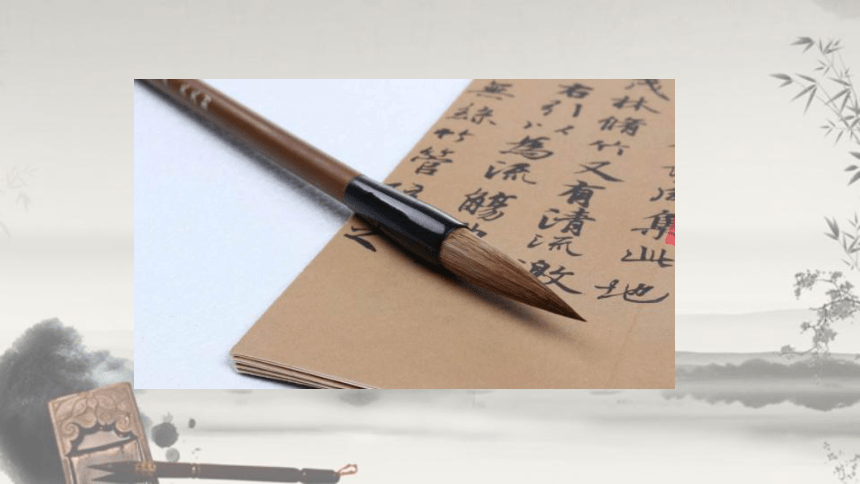 集此地
茂林脩竹又有清流激
右引以為流觴
無絲竹管